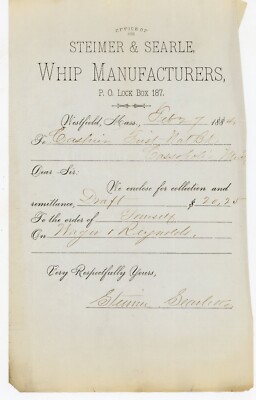 OFFICE OF
STEIMER & SEARLE,
WHIP MANUFACTURERS,
P. O. LOCK BOX 187.
Westfield, Mass., Feb 27 188
To Cashier First Nat Bk
Cassopolis Mich
Dear Sir:
We enclose for collection and
remittance, Draft $ 20.25
To the order of Yourself
On Wager & Reynolds
Very Respectfully Yours,
Steimer Searle